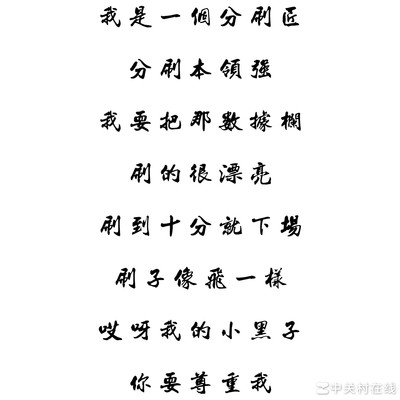 我是一個分刷匠
分刷本領强
我要把那數據欄
刷的很漂亮
刷到十分就下場
刷子像飛一樣
哎呀我的小黑子
你要尊重我
中关村在线